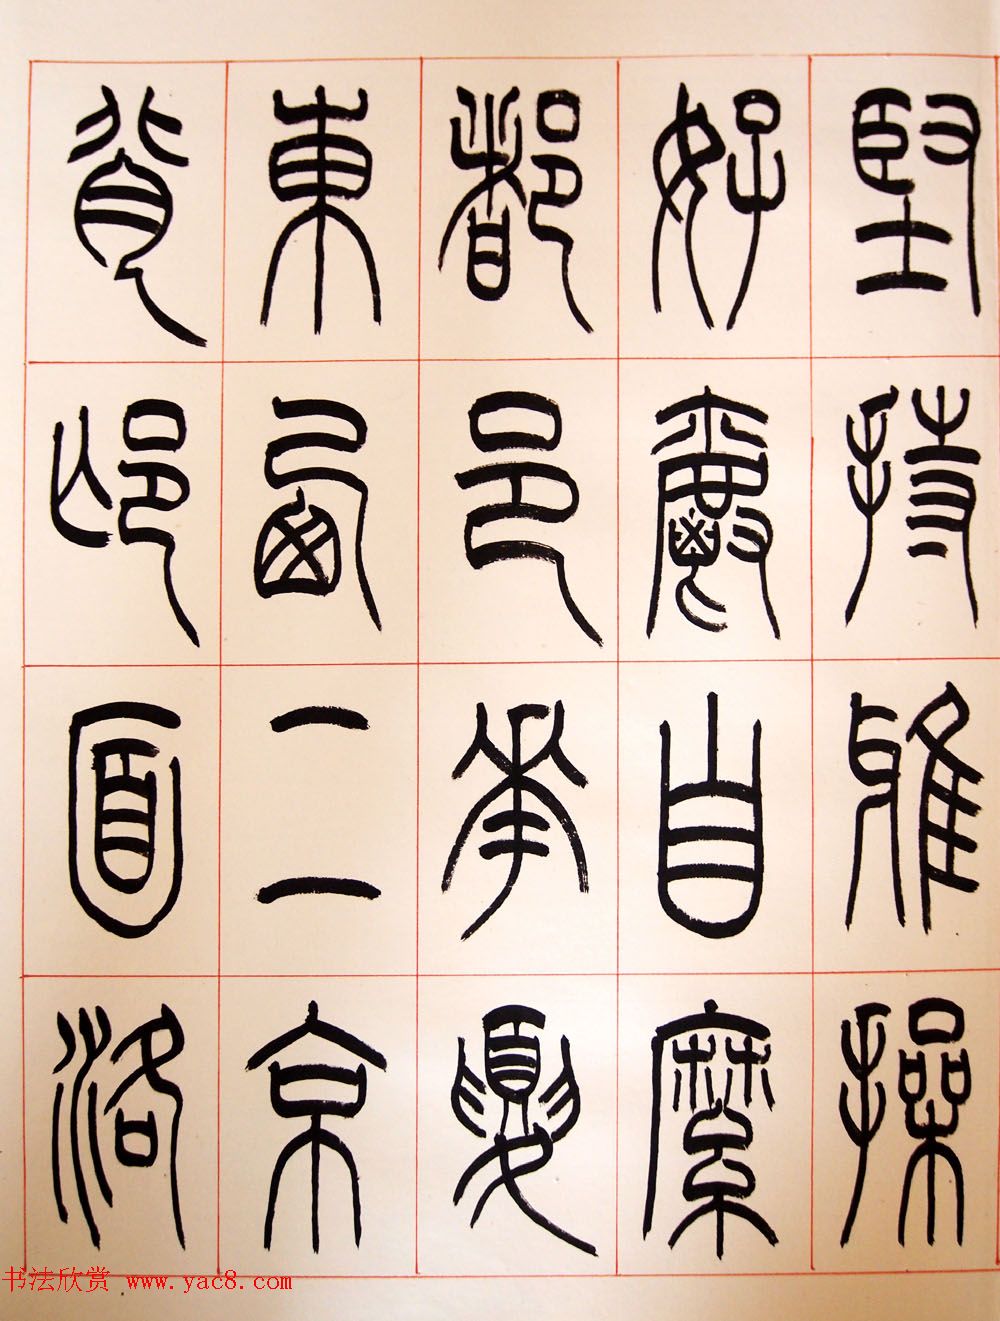 堅持雅操
好爵自縻
都邑華夏
東西二京
背邙面洛
书法欣赏 www.yac8.com